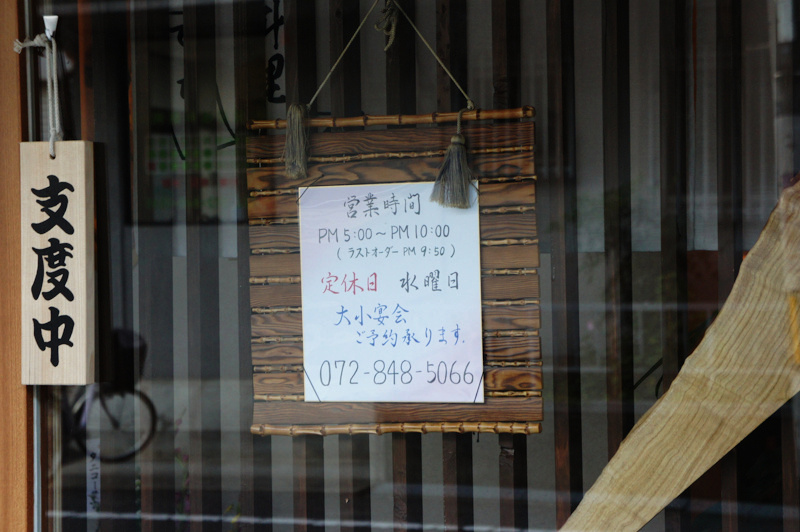 支度中
料理
営業時間
PM 5:00～PM 10:00
( ラストオーダー PM 9:50 )
定休日 水曜日
大小宴会
ご予約承ります.
072-848-5066